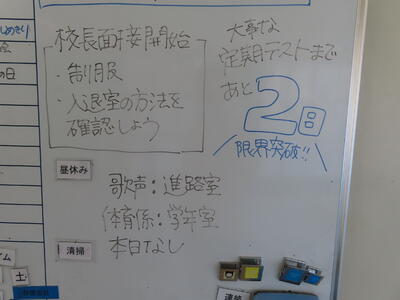 校長面接開始
・制服
・入退室の方法を
確認しよう
大事な
定期テストまで
あと2日
限界突破!!
昼休み
歌声：進路室
体育係：学年室
清掃
本日なし
土
連絡